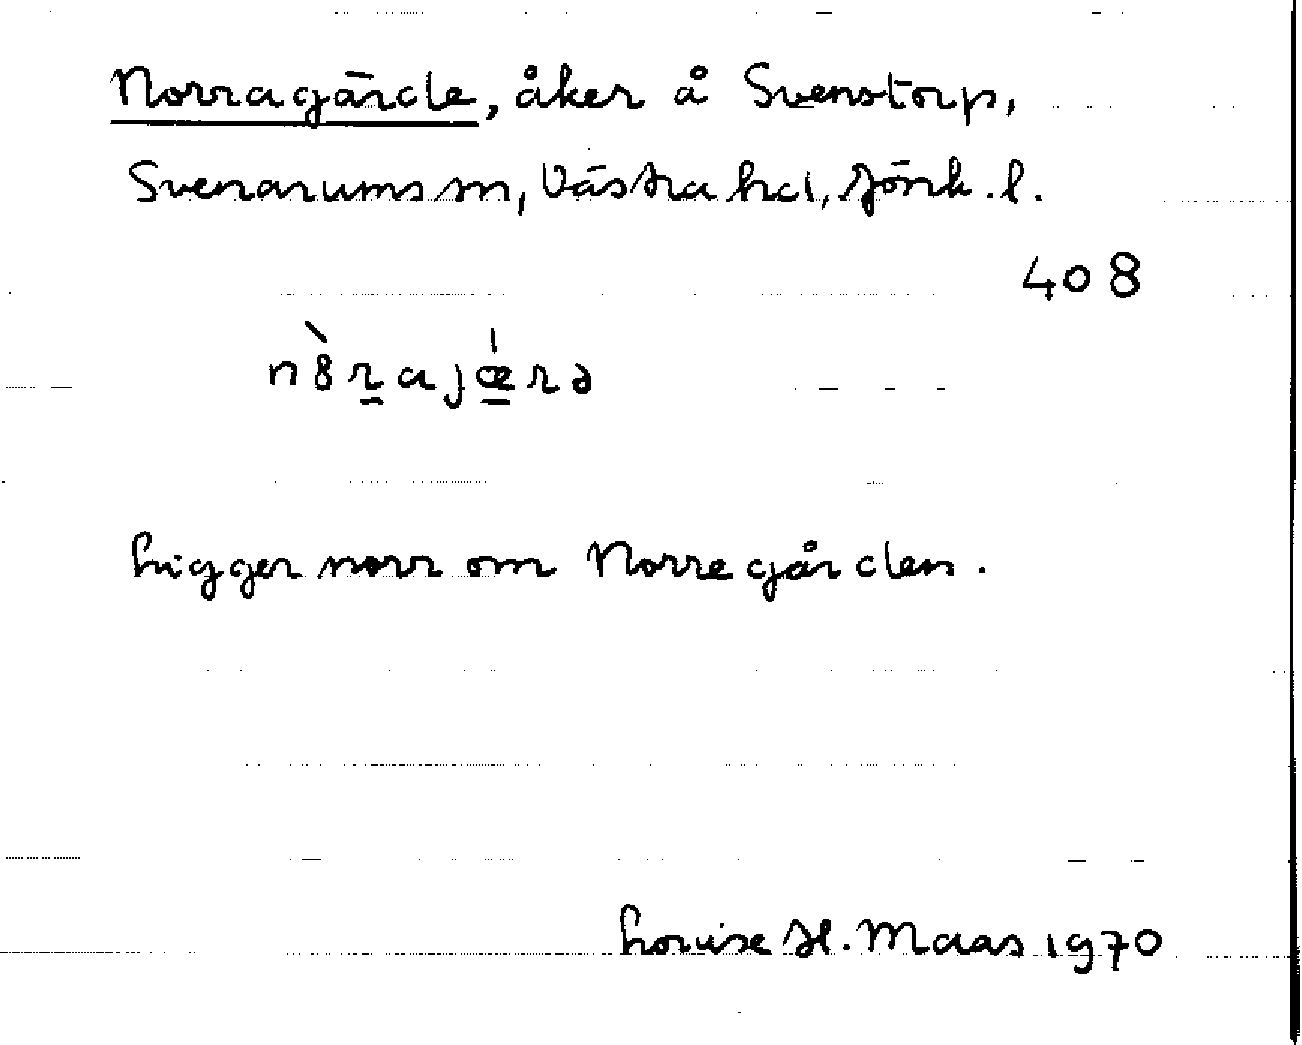 Norragärde, åker å Svenstorp,
Svenarums sn, Västra hd, Jönk.l.
408
n8̀r̲ajǽ̲rə
Ligger norr om Norregården.
Louise H. Maas 1970